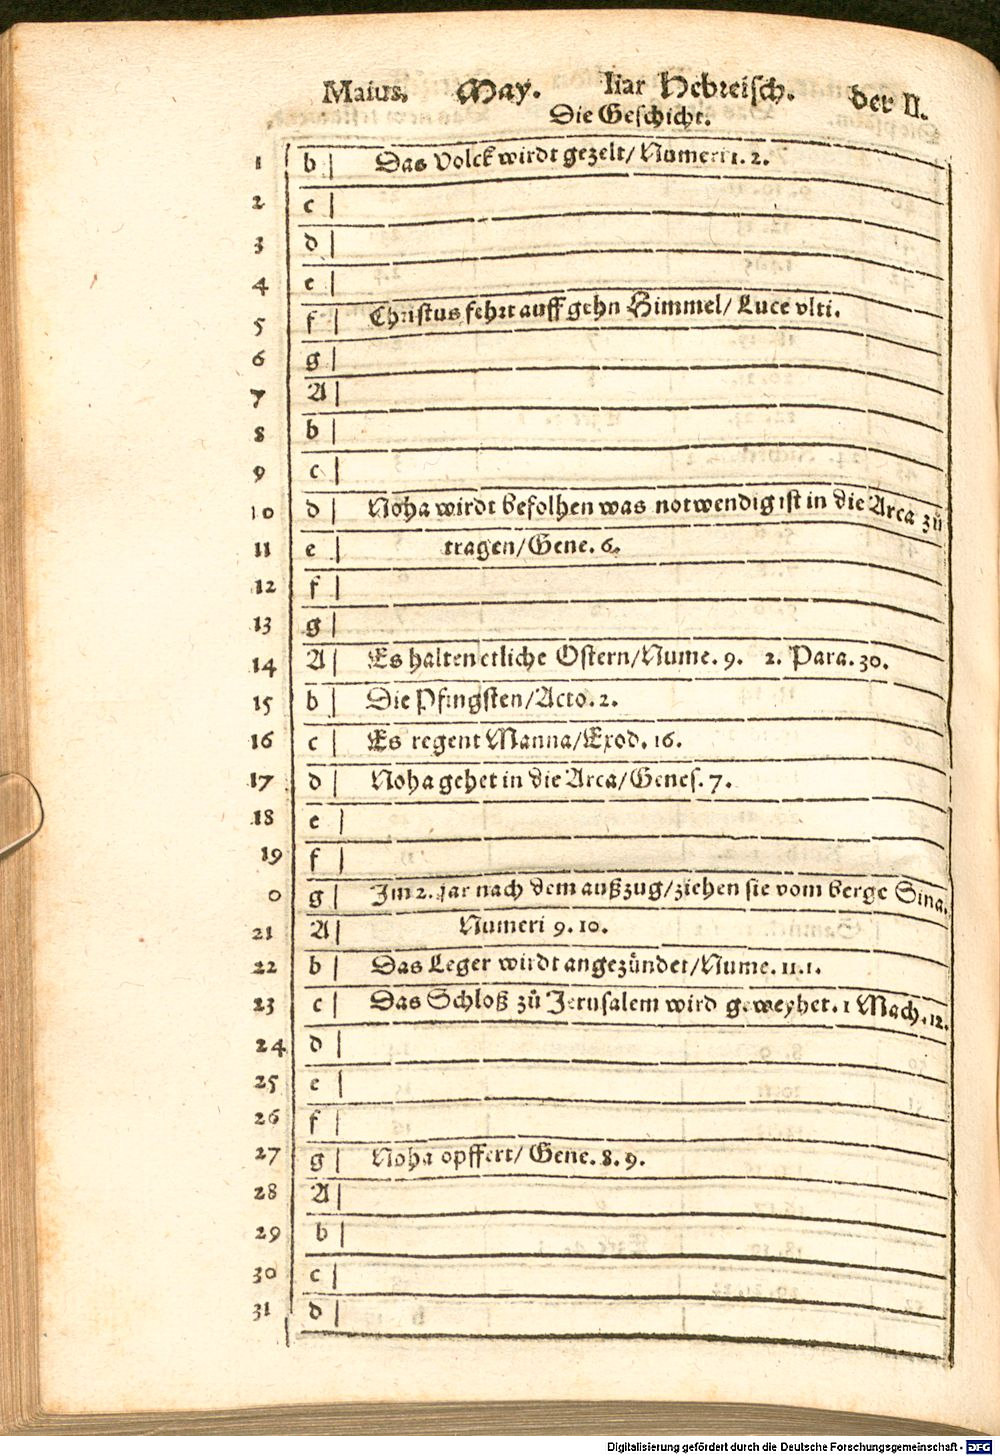 Maius. May. Iiar Hebreisch. der II.
Die Geschicht.
1 b Das Volck wirdt gezelt/ Numeri 1. 2.
2 c
3 d
4 e
5 f Christus fehrt auff gehn Himmel/ Luce vlti.
6 g
7 A
8 b
9 c
10 d Noha wirdt befolhen was notwendig ist in die Arca zů
11 e tragen/ Gene. 6.
12 f
13 g
14 A Es halten etliche Ostern/ Nume. 9. 2. Para. 30.
15 b Die Pfingsten/ Acto. 2.
16 c Es regent Manna/ Exod. 16.
17 d Noha gehet in die Arca/ Genes. 7.
18 e
19 f
0 g Im 2. jar nach dem außzug/ ziehen sie vom berge Sina.
21 A Numeri 9. 10.
22 b Das Leger wirdt angezündet/ Nume. 11. 1.
23 c Das Schloß zů Jerusalem wird geweyhet. 1 Mach. 12.
24 d
25 e
26 f
27 g Noha opffert/ Gene. 8. 9.
28 A
29 b
30 c
31 d
Digitalisierung gefördert durch die Deutsche Forschungsgemeinschaft - DFG